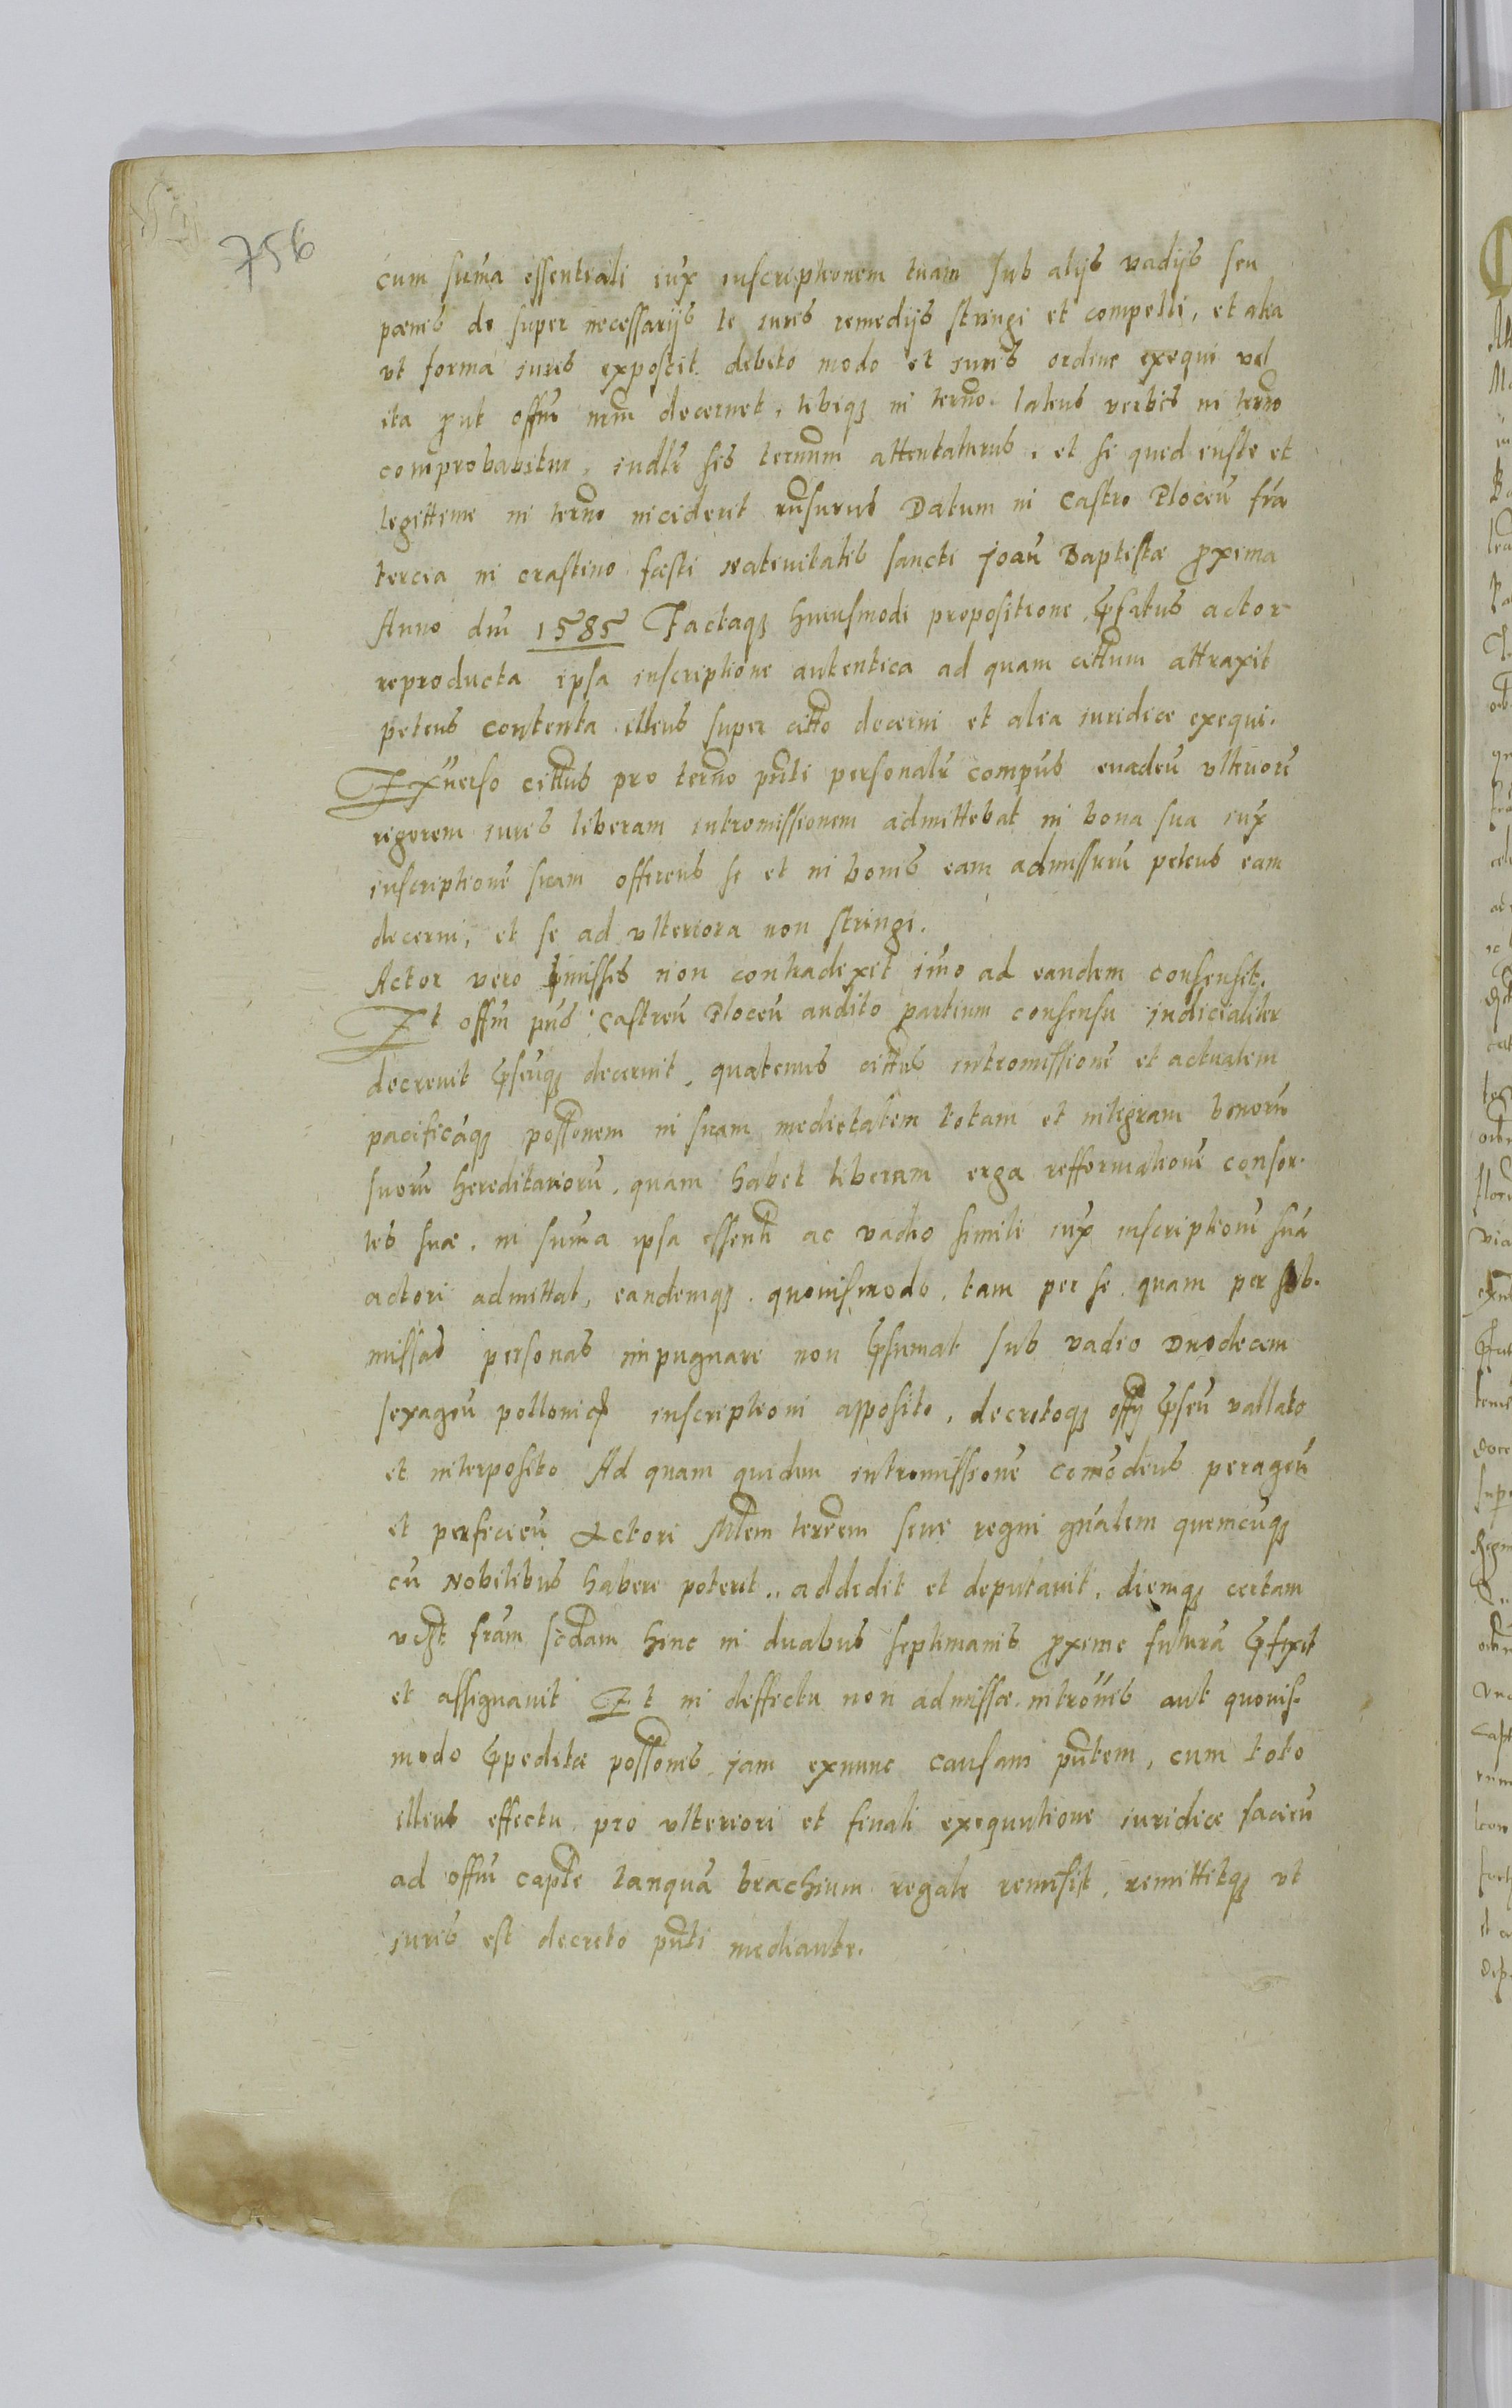 756
cum sum̄a essentiali iux̄ inscriptionem tuam sub alijs vadijs seu
pœnis de super necessarijs te iuris remedijs stringi et compelli, et alia
vt formā iuris exposcit debito modo et iuris ordine exequi vel
ita ꝓut offm̄ nrm̄ decernet, tibiqꝫ in termō latius verbis in termō
comprobabitur, iudlr̄ sis terminum attentaturus, et si quid iuste et
legittime in termō inciderit rn̄surus Datum in Castro Plocen̄ fr̄ia
tercia in crastino fæsti natiuitatis sancti Joan̄ Baptistæ ꝓxima
Anno dn̄i 1585 Factaqꝫ huiusmodi propositione p̄fatus actor
reproducta ipsa inscriptione autentica ad quam citt̄um attraxit
petens contenta illius super citt̄o decerni et alia iuridice exequi.
Ex̄uerso citt̄us pro termō pn̄ti personalr̄ comp̄us euaden̄ vlteriorē
rigorem iuris liberam intromissionem admittebat in bona sua iux̄
inscriptionē suam offerens se et in bonis eam admissurū petens eam
decerni, et se ad vlteriora non stringi.
Actor vero p̄missis non contradixit im̄o ad eandem consensit.
Et offm̄ pn̄s Castren̄ Plocen̄ audito partium consensu iudicialiter
decreuit p̄sen̄qꝫ decernit, quatenus citt̄us intromissionē et actualem
pacificāqꝫ possonem in suam medietatem totam et integram bonorū
suorū hereditariorū, quam habet liberam erga refformationē consor-
tis suæ, in sum̄a ipsa essentī ac vadio simili iux̄ inscriptionē suā
actori admittat, eandemqꝫ quouismodo, tam per se quam per sub-
missas personas impugnare non p̄sumat sub vadio Duodecim
sexagen̄ pollonicꝭ inscriptioni apposito, decretoqꝫ offij p̄sen̄ vallato
et interposito Ad quam quidem intromissionē com̄odius peragen̄
et perficien̄ Actori Mlem terrēm siue regni gn̄alem quemcūqꝫ
cū Nobilibus habere poterit, addidit et deputauit, diemqꝫ certam
vicꝫt fr̄iam scdam hinc in duabus septimanis ꝓxime futurā p̄fixit
et assignauit Et in deffectu non admissæ introm̄nis aut quouis-
modo p̄pedita possonis jam exnunc causam pn̄tem, cum toto
illius effectu, pro vlteriori et finali exequutione iuridice facien̄
ad offm̄ capl̄e tanquā brachium regale remisit, remittitqꝫ vt
iuris est decreto pn̄ti mediante.